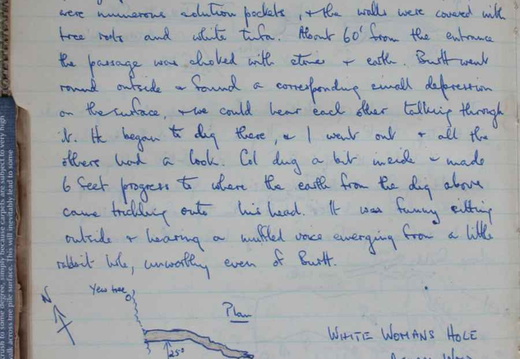 were numerous solution pockets, & the walls were covered with
tree roots and white tufa. About 60' from the entrance
the passage was choked with stones & earth. Brett went
round outside & found a corresponding small depression
on the surface, & we could hear each other talking through
it. He began to dig there, & I went out & all the
others had a look. Col dug a bit inside & made
6 feet progress to where the earth from the dig above
came trickling onto his head. It was funny sitting
outside & hearing a muffled voice emerging from a little
rabbit hole, unworthy even of Brett.
N
Yew tree
Plan
WHITE WOMANS HOLE
25°
to some degree, simply because carpets are subject to very high
across tree pile surface. This will inevitably lead to some